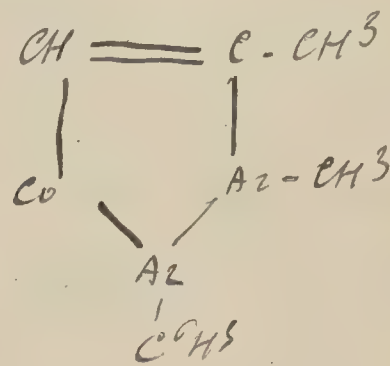 CH = C - CH³
Co Az - CH³
Az
C⁶H⁵